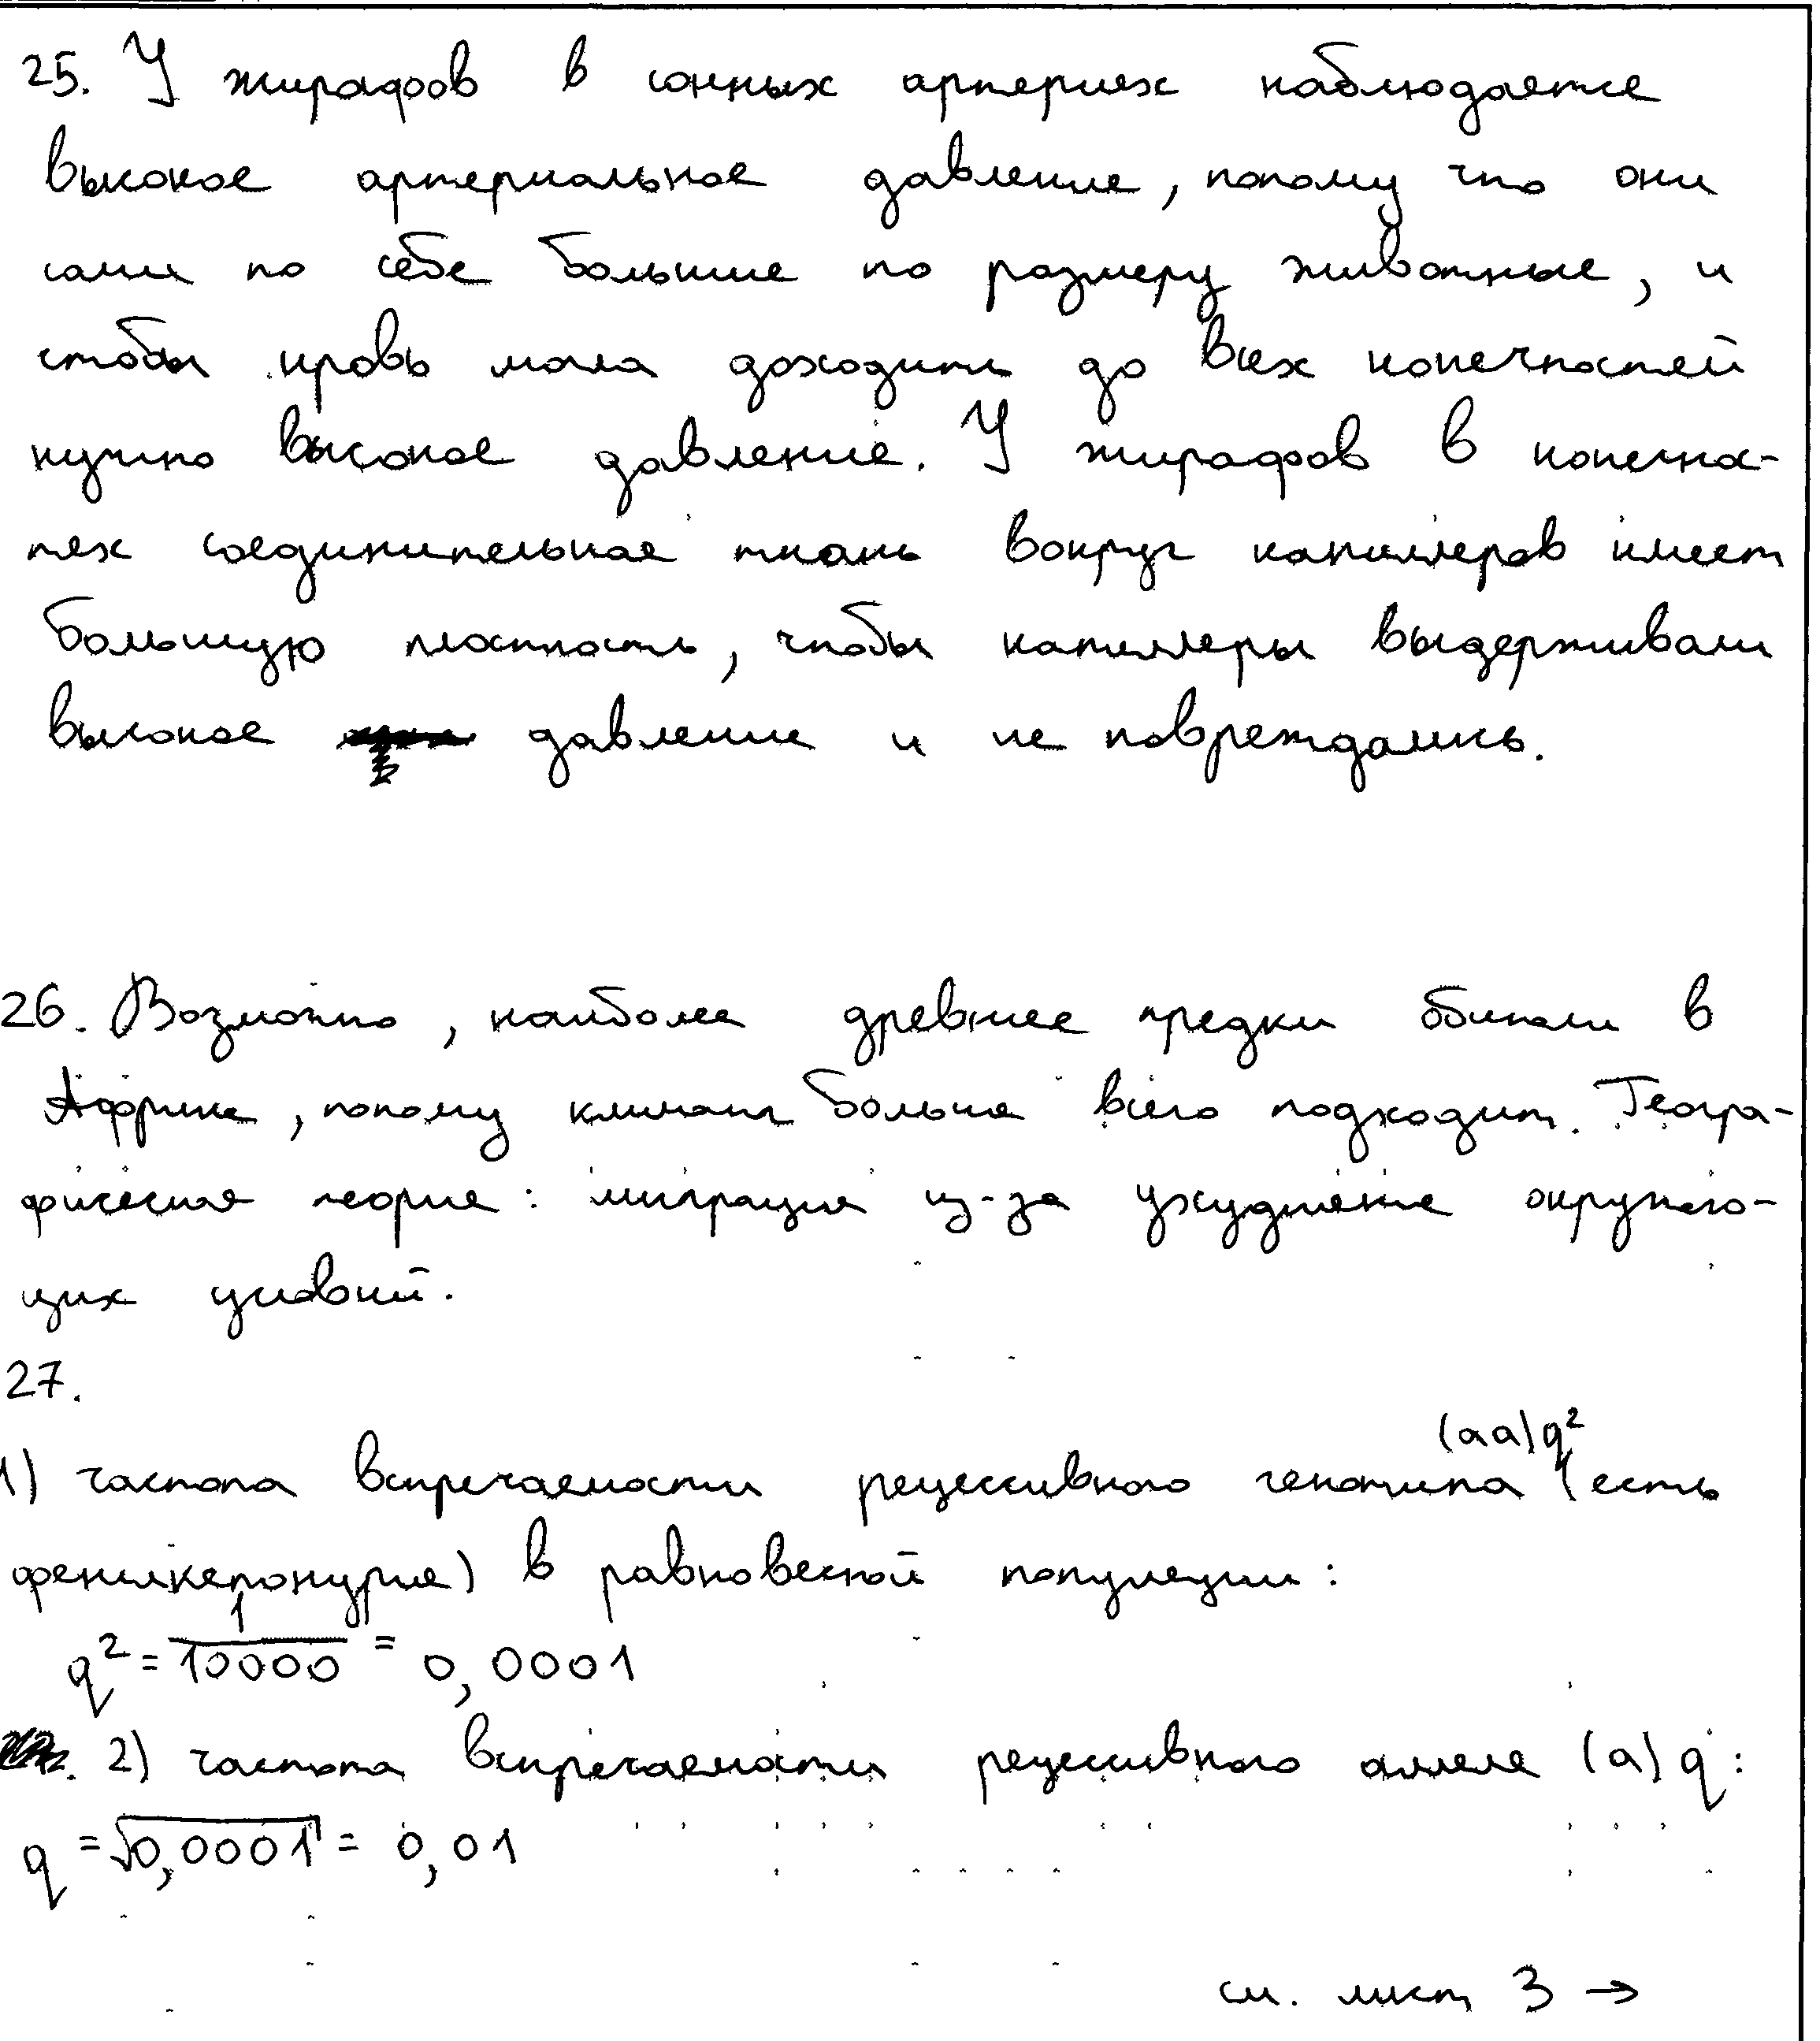 25. У жирафов в сонных артериях наблюдается
высокое артериальное давление, потому что они
сами по себе большие по размеру животные, и
чтобы кровь могла доходить до всех конечностей
нужно высокое давление. У жирафов в конечнос-
тях соединительная ткань вокруг капилляров имеет
большую плотность, чтобы капилляры выдерживали
высокое давление и не повреждались.
26. Возможно, наиболее древнее предки обитали в
Африке, потому климат больше всего подходит. Геогра-
фическая теория: миграция из-за ухудшение окружаю-
щих условий.
27.
(aa) q²
1) частота встречаемости рецессивного генотипа (есть
фенилкетонурия) в равновесной популяции:
q² = 1/10000 = 0,0001
2) частота встречаемости рецессивного аллеля (a) q:
q = √0,0001 = 0,01
см. лист 3 →